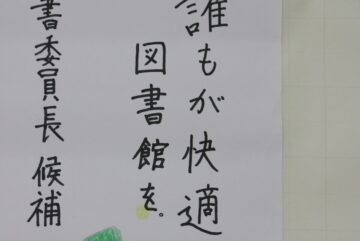 誰もが快適
図書館を。
書委員長 候補